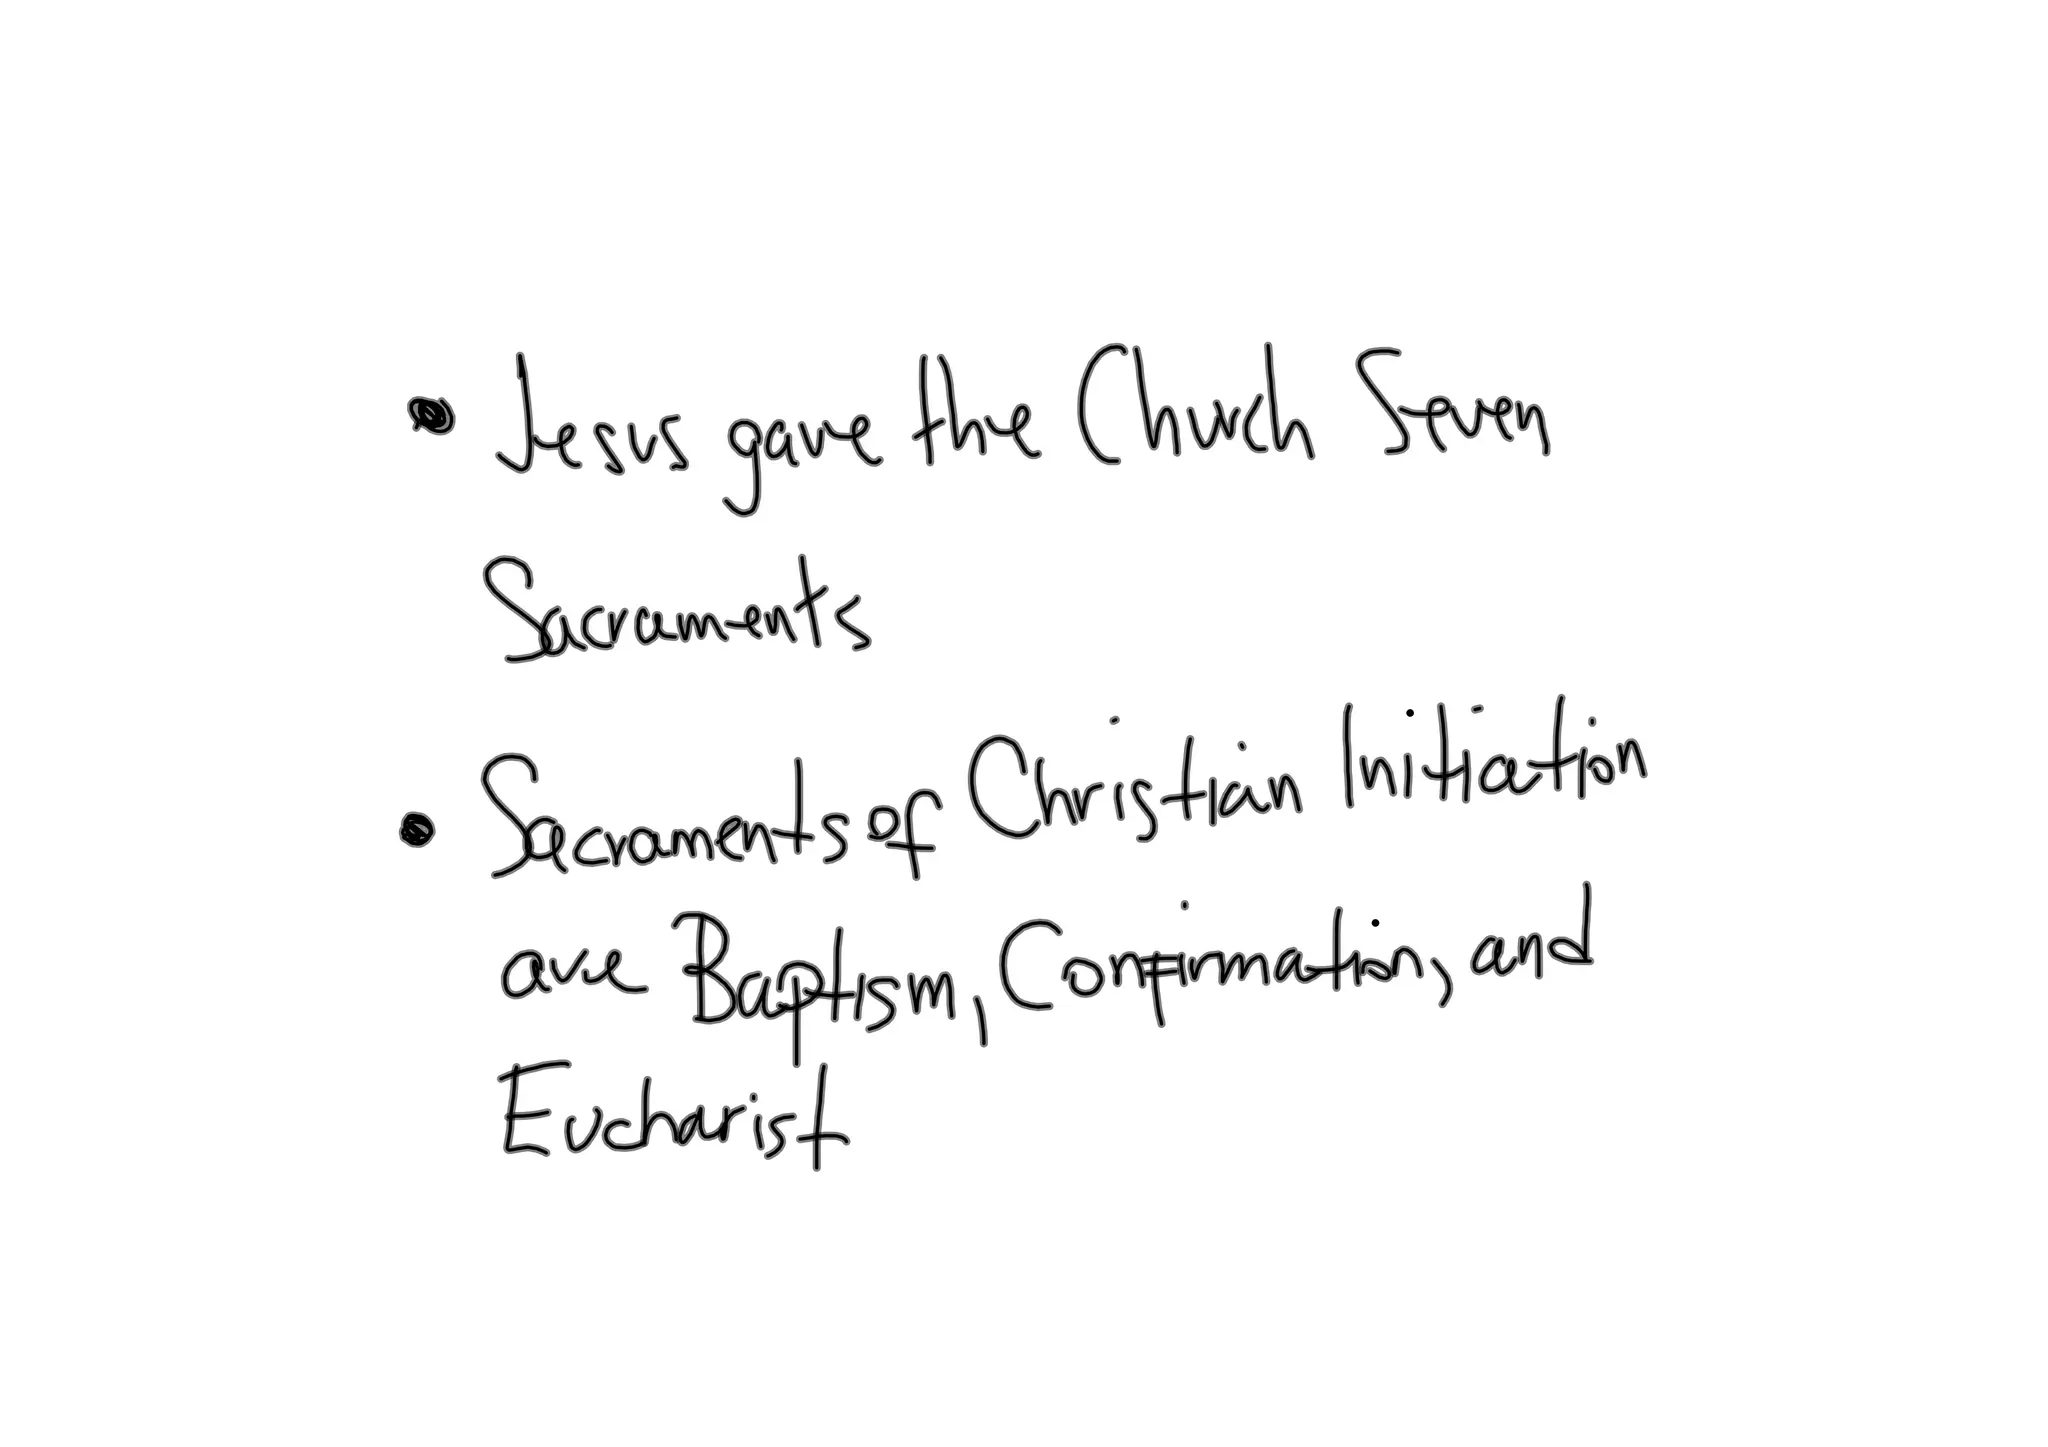 • Jesus gave the Church Seven
Sacraments
• Sacraments of Christian Initiation
are Baptism, Confirmation, and
Eucharist